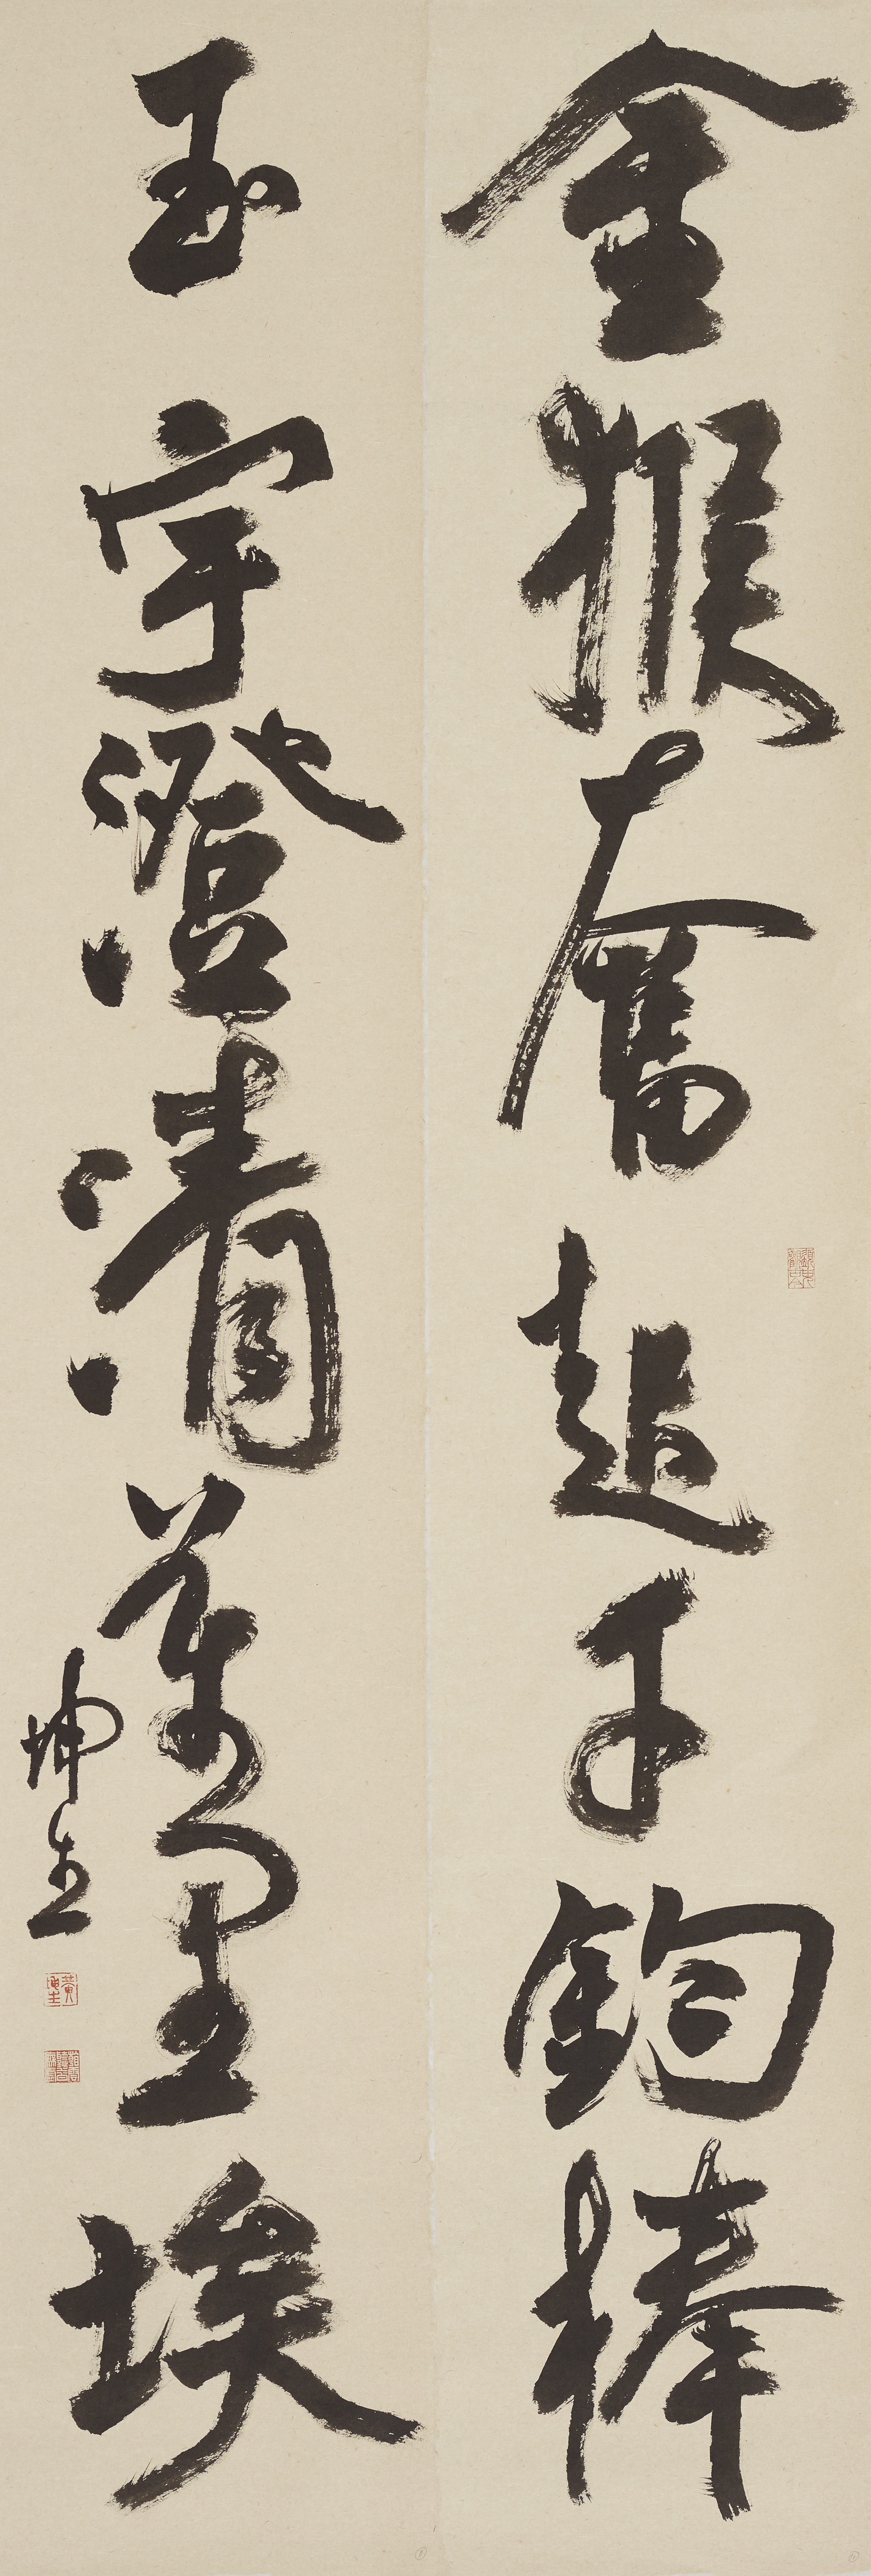 金猴奮起千鈞棒
玉宇澄清萬里埃
坤生